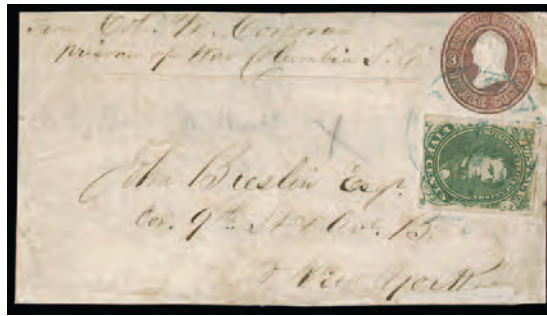 from Col. M. Corcoran
prisoner of War Columbia S.C.
3 3
John Breslin Esqr.
Cor. 9th St & Ave. B.
New York